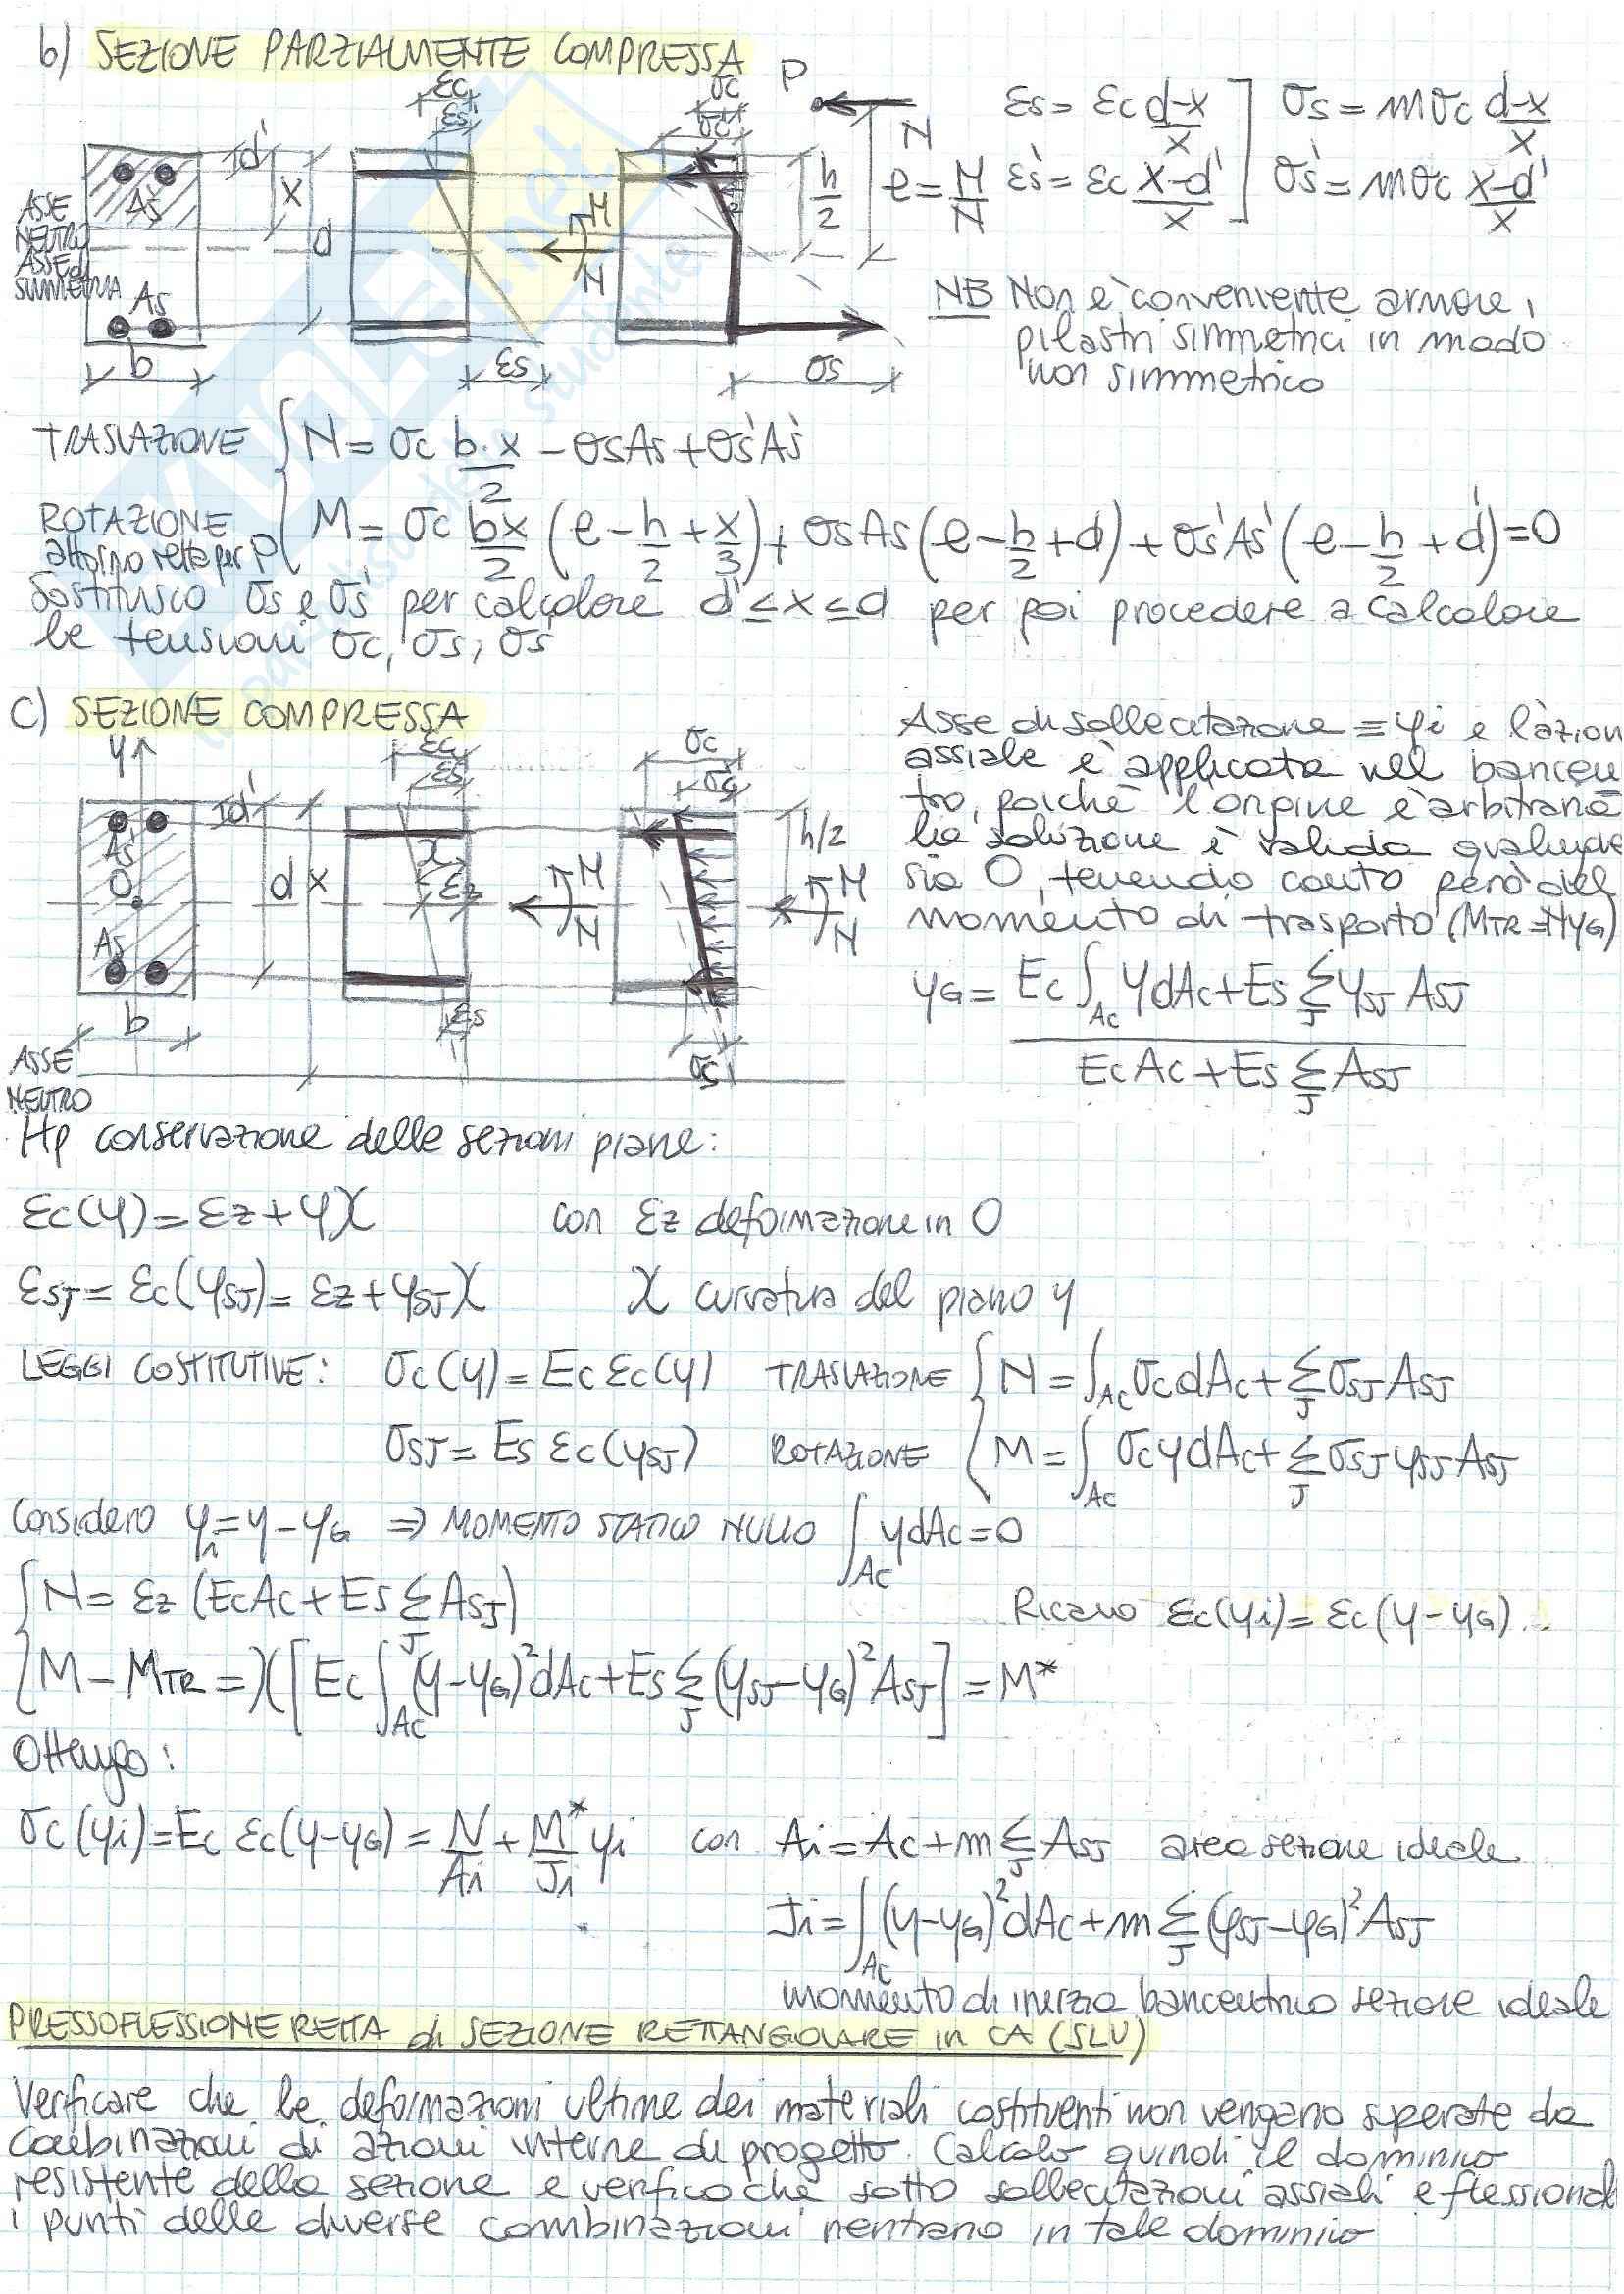 b) SEZIONE PARZIALMENTE COMPRESSA
εc
εs'
σc
σs'
P
N
d'
x
d
h/2
e = M/N
εs = εc (d-x)/x
σs = mσc (d-x)/x
εs' = εc (x-d')/x
σs' = mσc (x-d')/x
As'
ASSE NEUTRO
ASSE di SIMMETRIA
As
b
M
N
εs
σs
NB Non è conveniente armare i
pilastri simmetrici in modo
non simmetrico
TRASLAZIONE { N = σc b·x/2 - σsAs + σs'As'
ROTAZIONE attorno retta per P { M = σc bx/2 (e - h/2 + x/3) + σsAs (e - h/2 + d) + σs'As' (e - h/2 + d') = 0
Sostituisco σs e σs' per calcolare d' ≤ x ≤ d per poi procedere a calcolare
le tensioni σc, σs, σs'
c) SEZIONE COMPRESSA
y
εc
εs'
σc
σs'
d'
d
x
As'
O
As
b
χ
εz
εs
M
N
h/2
M
N
σs
ASSE
NEUTRO
Asse di sollecitazione ≡ yi e l'azion
assiale è applicata nel baricen
tro, poiché l'origine è arbitraria
la soluzione è valida qualunque
sia O, tenendo conto però del
momento di trasporto (MTR = NyG)
yG = (Ec ∫Ac y dAc + Es Σj ysj Asj) / (Ec Ac + Es Σj Asj)
Hp conservazione delle sezioni piane:
εc(y) = εz + yχ con εz deformazione in O
εsj = εc(ysj) = εz + ysjχ χ curvatura del piano y
LEGGI COSTITUTIVE: σc(y) = Ec εc(y) TRASLAZIONE { N = ∫Ac σc dAc + Σj σsj Asj
σsj = Es εc(ysj) ROTAZIONE { M = ∫Ac σc y dAc + Σj σsj ysj Asj
Considero yi = y - yG ⇒ MOMENTO STATICO NULLO ∫Ac y dAc = 0
{ N = εz (Ec Ac + Es Σj Asj)
Ricavo εc(yi) = εc(y - yG)
{ M - MTR = χ [Ec ∫Ac (y - yG)² dAc + Es Σj (ysj - yG)² Asj] = M*
Ottengo:
σc(yi) = Ec εc(y - yG) = N/Ai + M*/Ji yi con Ai = Ac + m Σj Asj area sezione ideale
Ji = ∫Ac (y - yG)² dAc + m Σj (ysj - yG)² Asj
momento di inerzia baricentrico sezione ideale
PRESSOFLESSIONE RETTA di SEZIONE RETTANGOLARE in CA (SLU)
Verificare che le deformazioni ultime dei materiali costituenti non vengano superate da
combinazioni di azioni interne di progetto. Calcolo quindi il dominio
resistente della sezione e verifico che sotto sollecitazioni assiali e flessionali
i punti delle diverse combinazioni rientrano in tale dominio